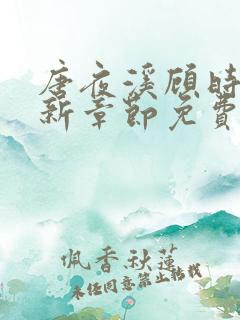 唐夜溪顾时
新章节免费
佩香秋莲
未经同意禁止转载